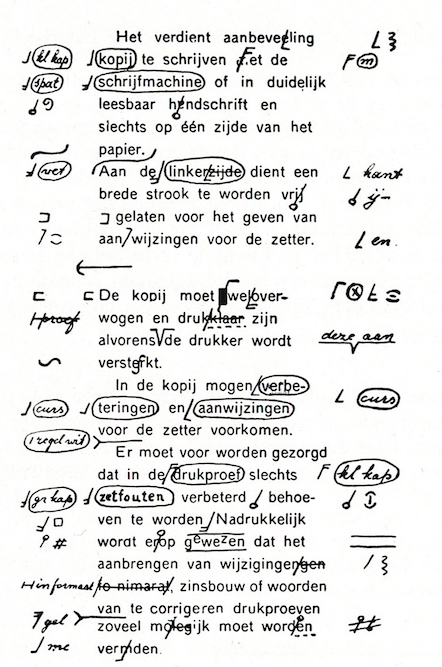 Het verdient aanbeveeling
kl kap kopij te schrijven met de F m
spat schrijfmachine of in duidelijk
leesbaar hendschrift en
slechts op één zijde van het
papier.
vet Aan de linkerzijde dient een kant
brede strook te worden vrij ij
gelaten voor het geven van
aan wijzingen voor de zetter. en.
De kopij moet weloverwogen
proef wogen en drukklaar zijn
alvorens de drukker wordt deze aan
versterkt.
In de kopij mogen verbe-
curs teringen en aanwijzingen curs
voor de zetter voorkomen.
1 regel wit
Er moet voor worden gezorgd
dat in de drukproef slechts F kl kap
gr kap zetfouten verbeterd behoe-
ven te worden Nadrukkelijk
# wordt erop gewezen dat het
aanbrengen van wijzigingengen
informast to nimarat, zinsbouw of woorden
van te corrigeren drukproeven
gel zoveel molegijk moet worden
me verniden.